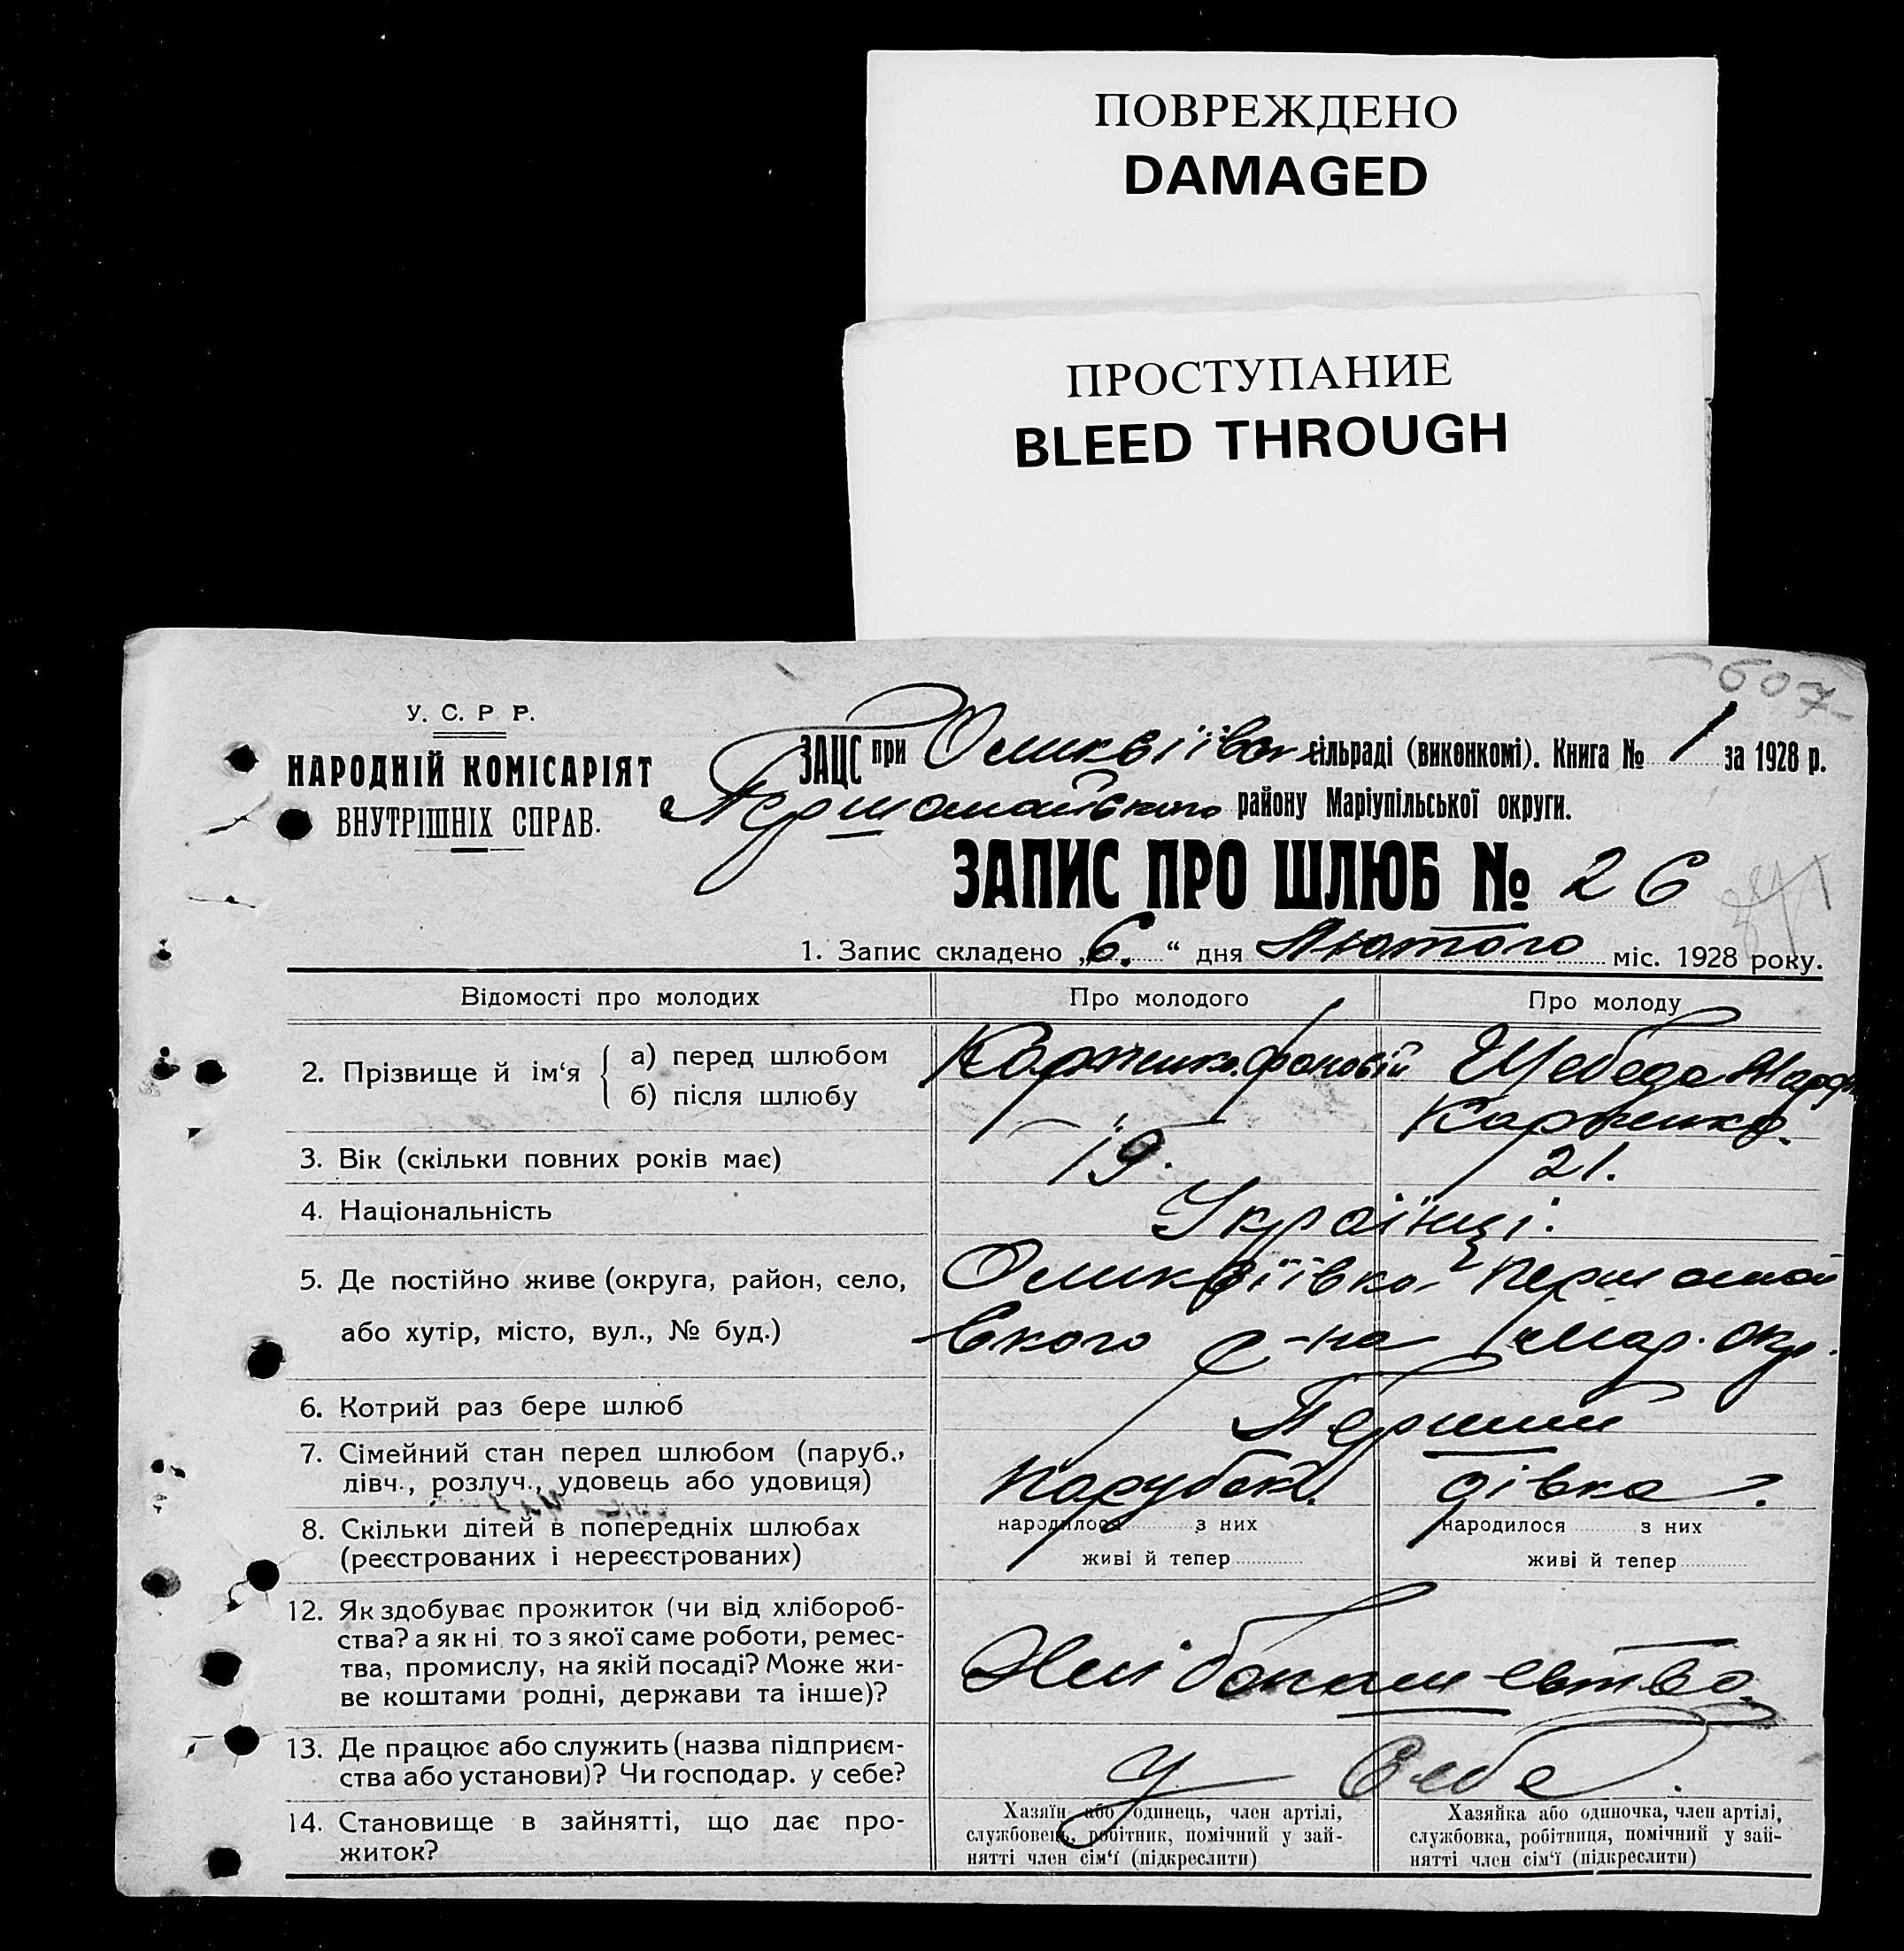 ПОВРЕЖДЕНО
DAMAGED
ПРОСТУПАНИЕ
BLEED THROUGH
607
У. С. Р. Р.
НАРОДНІЙ КОМІСАРІЯТ
ВНУТРІШНІХ СПРАВ.
ЗАЦС при сільраді (виконкомі). Книга № 1 за 1928 р.
Першомайського району Маріупільської округи.
ЗАПИС ПРО ШЛЮБ № 26
1. Запис складено „6." дня Лютого міс. 1928 року.
Відомості про молодих Про молодого Про молоду
2. Прізвище й ім'я а) перед шлюбом Шебеда
б) після шлюбу
3. Вік (скільки повних років має) 19. 21.
4. Національність Українці.
5. Де постійно живе (округа, район, село, Першомай
або хутір, місто, вул., № буд.) ського р-на Мар. окр.
6. Котрий раз бере шлюб Перший
7. Сімейний стан перед шлюбом (паруб., дівч., розлуч., удовець або удовиця) парубок. дівка.
8. Скільки дітей в попередніх шлюбах народилося з них народилося з них
(реєстрованих і нереєстрованих) живі й тепер живі й тепер
12. Як здобуває прожиток (чи від хлібороб-
ства? а як ні, то з якої саме роботи, ремес-
тва, промислу, на якій посаді? Може жи-
ве коштами родні, держави та інше)?
13. Де працює або служить (назва підприєм-
ства або установи)? Чи господар. у себе? У себе.
14. Становище в зайнятті, що дає про-
житок?
Хазяїн або одинець, член артілі,
службовець, робітник, помічний у зай-
нятті член сім'ї (підкреслити)
Хазяйка або одиночка, член артілі,
службовка, робітниця, помічний у зай-
нятті член сім'ї (підкреслити)